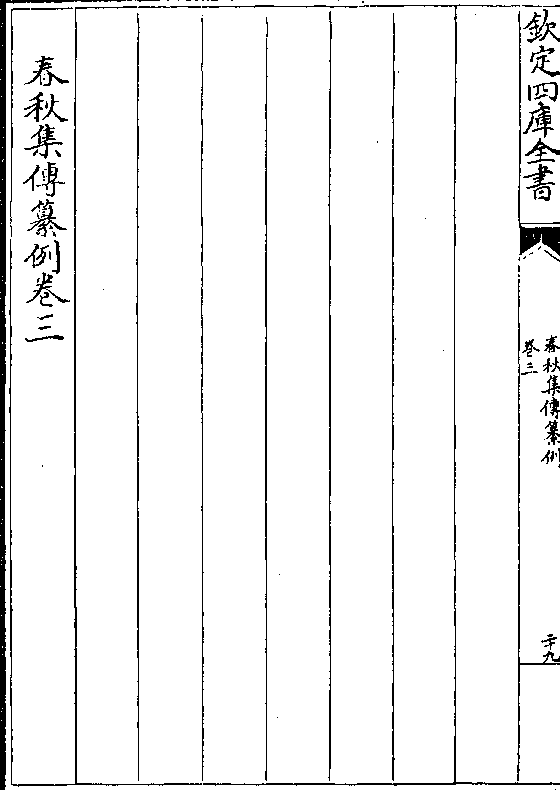 欽定四庫全書
春秋集傳纂例
卷三
二十九
春秋集傳纂例卷三